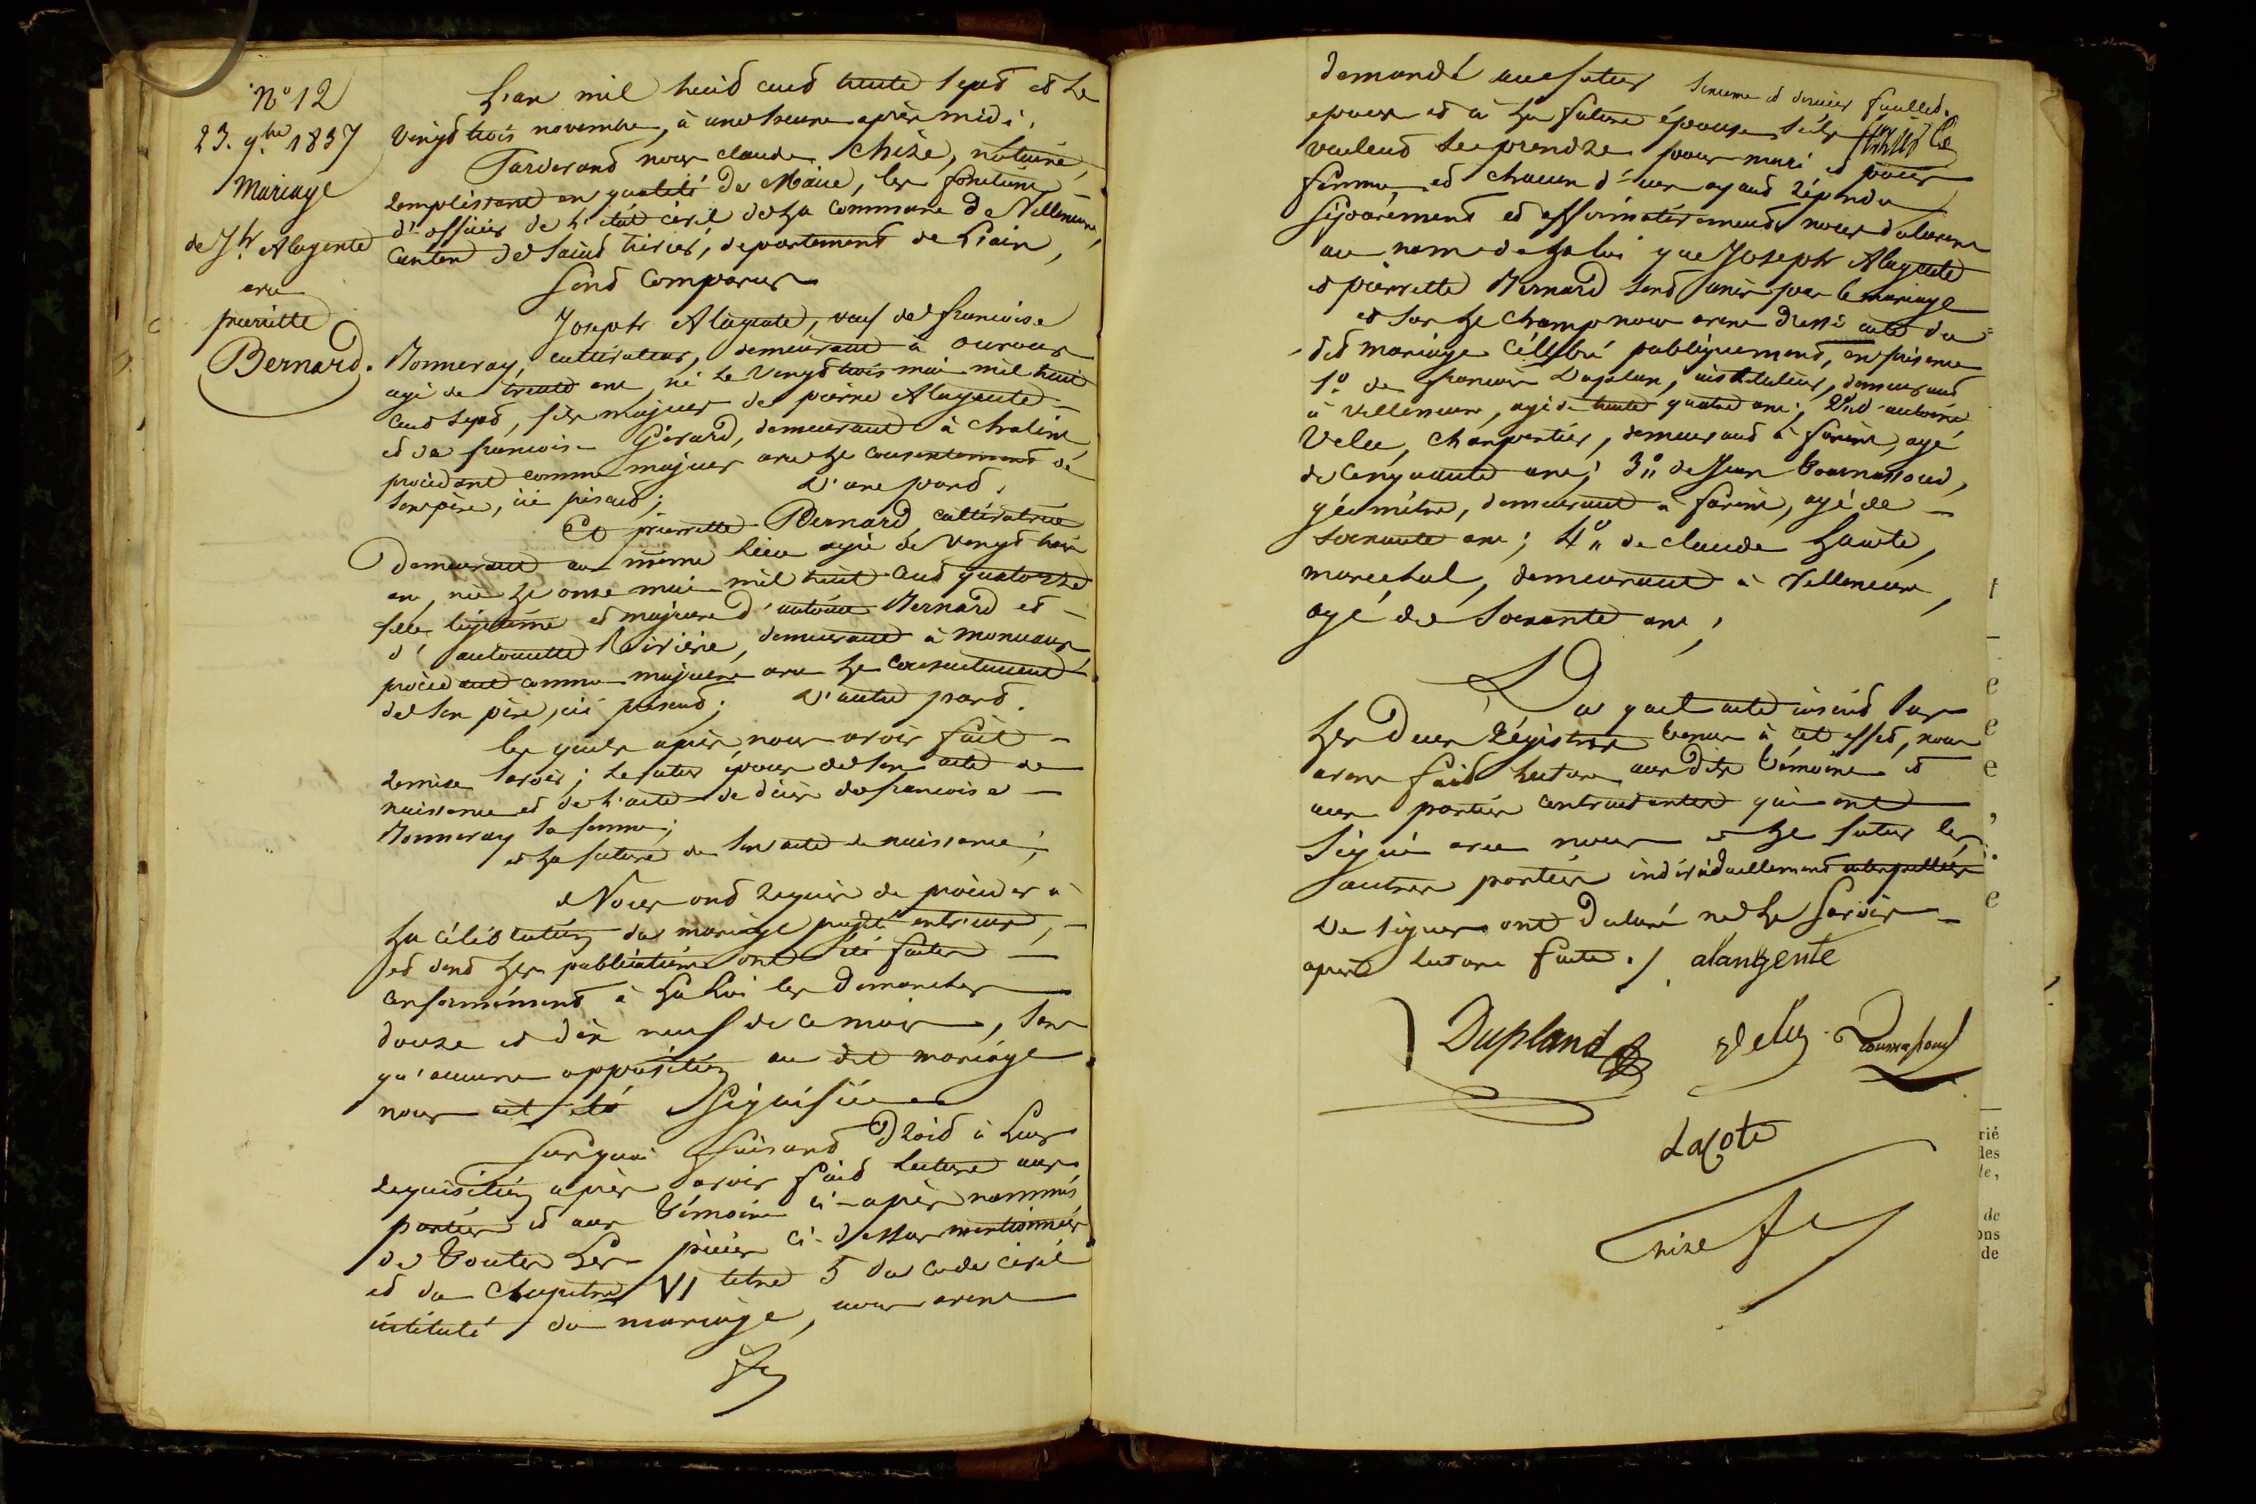 N° 12
23. 9bre 1837
Mariage
de Jh. Alagente
avec
pierrette
Bernard.
L'an mil huit cent trente sept et le
vingt trois novembre, à une heure après midi,
Pardevant nous claude Chize, notaire,
remplissant en qualité de Maire, les fonctions
d'officier de l'état civil de la commune de Villeneuve,
canton de saint trivier, département de L'ain,
sont comparus
Joseph Alagente, veuf de francoise
Monneray, cultivateur, demeurant à
agé de trente ans, né le vingt trois mai mil huit
cent sept, fils majeur de pierre Alagente
et de francoise Gérard, demeurant à
procédant comme majeur avec le consentement de
son père, ici présent; d'une part.
Et pierrette Bernard, cultivatrice
Demeurant au même lieu agée de vingt trois
ans, née le onze mai mil huit cent quatorze
fille légitime et majeure d'antoine Bernard et
d'antoinette Rivière, demeurant à
procédant comme majeure avec le consentement
de son père, ici présent; d'autre part.
les quels après nous avoir fait
remise savoir; le futur époux de son acte de
naissance et de l'acte de décès de francoise
Monneray sa femme;
et la future de son acte de naissance;
Nous ont requis de procéder à
la célébration du mariage projeté entr'eux,
et dont les publications ont été faites
conformément à la Loi les dimanches
douze et dix neuf de ce mois, sans
qu'aucune opposition au dit mariage
nous ait été signifiée
Sur quoi faisant Droit à Leur
requisition après avoir fait lecture aux
parties et aux témoins ci-après nommés
de toutes les pièces ci-dessus mentionnées
et du Chapitre VI titre 5 du code civil
intitulé du mariage, nous avons
demandé au futur
sixieme et dernier feuillet.
epoux et à la future épouse s'ils
veulent se prendre pour mari et pour
femme, et chacun d'eux ayant répondu
séparément et affirmativement, nous déclarons
au nom de la loi que Joseph Alagente
et pierrette Bernard sont unis par le mariage
et sur le champ nous avons dressé acte du
dit mariage célébré publiquement, en présence
1° de francois Duplan, instituteur, demeurant
à villeneuve, agé de trente quatre ans; 2° d'antoine
Velu, charpentier, demeurant à fareins, agé
de cinquante ans; 3° de Jean Tournassoud,
géomètre, demeurant à fareins, agé de
soixante ans; 4° de claude Lacote,
marechal, demeurant à Villeneuve,
agé de soixante ans;
Du quel acte inscrit sur
les Deux Régistres tenus à cet effet, nous
avons fait lecture aux dits témoins et
aux parties contractantes qui ont
signé avec nous et le futur les
autres parties individuellement interpellées
de signer ont déclaré ne le savoir
après lecture faite. /. alangente
Dupland Velu Tournassoud
Lacote
Chize